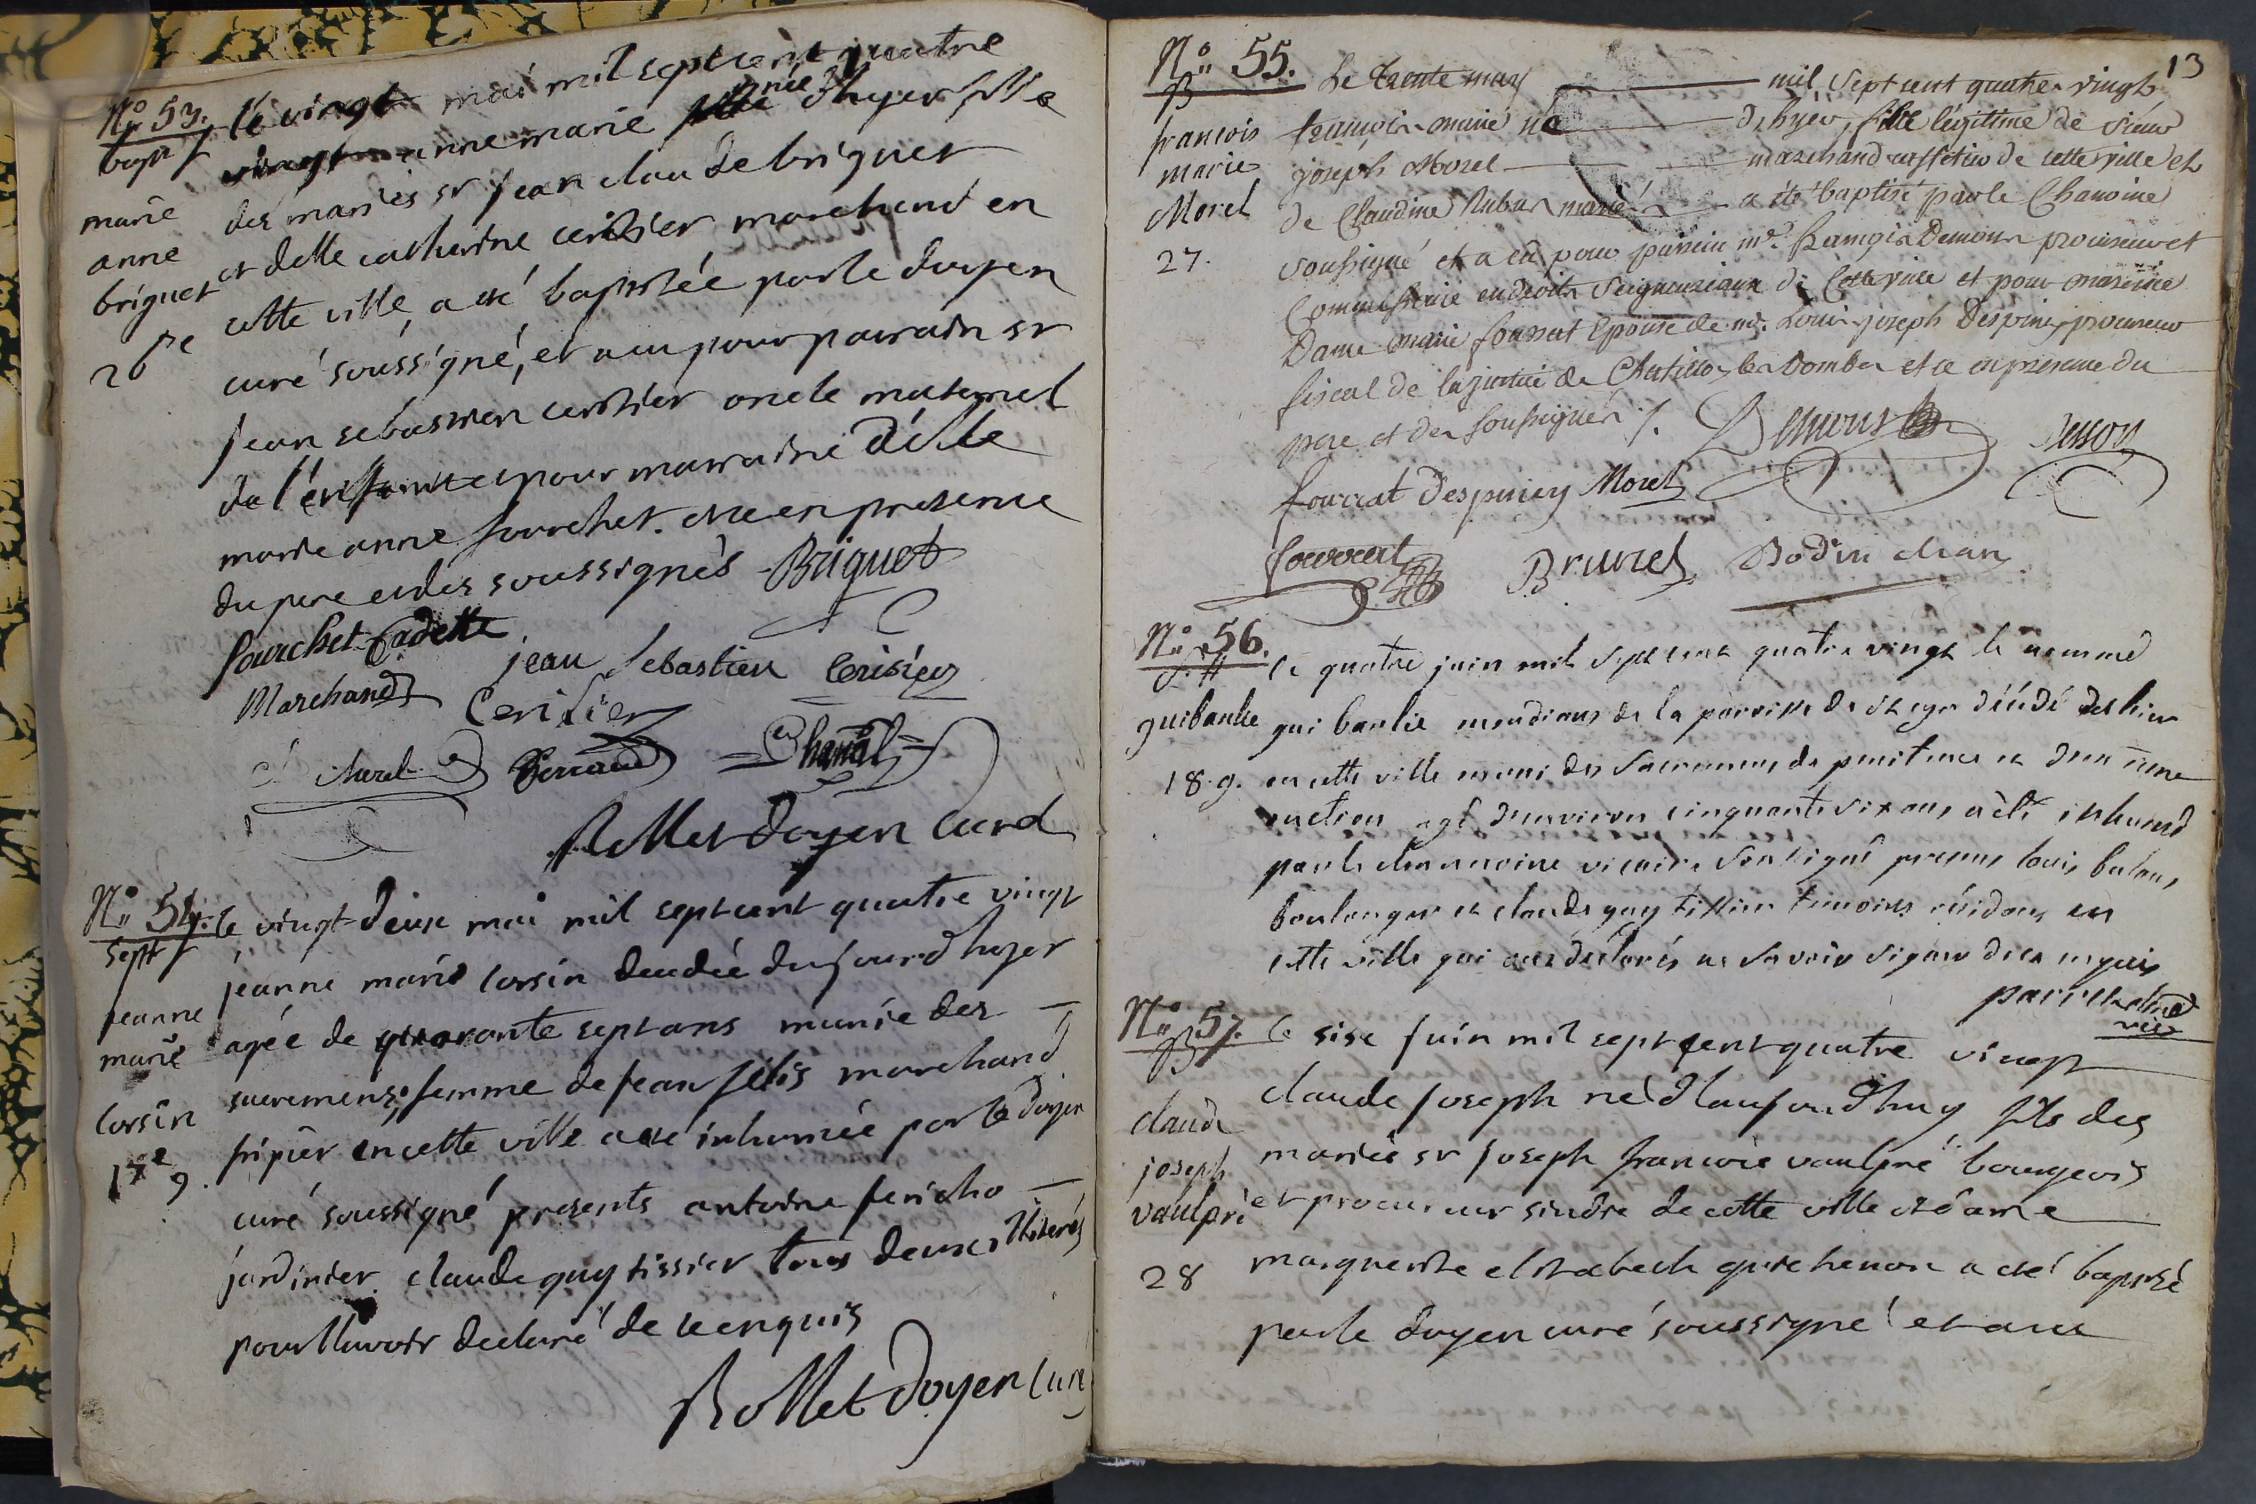 No 53. le vingt mai mil sept cent quatre
bapt vingt anne marie née d'hyer fille
marie des mariés sr jean claude briguet
anne et delle catherine cerisier marchand en
briguet cette ville, a eté baptisée par le doyen
26 re curé soussigné, et a eu pour parrain sr
jean sebastien cerisier oncle maternel
de l'enfant et pour marraine delle
marie anne fourchet. et ce en presence
du pere et des soussignés Briguet
fourchet Cadette
jean Sebastien Cerisier
Marchand Cerisier
Bernard Chanal
Rollet doyen curé
No 54. le vingt deux mai mil sept cent quatre vingt
sept jeanne marie corsin decedée du jourd'huyer
jeanne agée de quarante sept ans munie des
marie sacremens, femme de jean felis marchand
corsin fripier en cette ville a eté inhumée par le doyen
17 e g. curé soussigné presents antoine jericho
jardinier claude guy tissier tous deux illiterés
pour l'avoir declaré de ce enquis
Rollet doyen curé
13
No 55. Le trente may mil sept cent quatre vingt
B
francois françois marie né d'hyer, fils légitime de sieur
marie joseph Morel marchand caffetier de cette ville et
Morel de Claudine Rubat mariés a été baptisé par le Chanoine
27. soussigné et a eû pour parrein me. françois Demour procureur et
Commissaire en droits Seigneuriaux de Cette ville et pour mareine
Dame marie fourrat Epouse de me. Louis joseph Despiney procureur
fiscal de la justice de Chatillon les Dombes et ce en presence du
pere et des soussignés /. Demour Jesson
fourrat Despiney Morel
fourrat Brunel Bodin chan.
No 56.
S. le quatre juin mil sept cent quatre vingt le nommé
guibaulie gui baulie mendians de la paroisse de st cyr décédé dès hier
18. g. en cette ville muni des sacremens de penitence et d'extreme
onction agé d'environ cinquante six ans a été inhumé
par le chanoine vicaire soussigné presens louis
boulanger et claude guy tissier temoins résidans en
cette ville qui ont déclarés ne savoir signer de ce enquis
vic
No 57. le sixe juin mil sept cent quatre vingt
B
claude claude joseph né d'aujourd'huy fils des
joseph mariés sr joseph françois vaulpré bourgeois
vaulpré et procureur sindic de cette ville et dame
28 marguerite elizabeth guichenon a eté baptisé
par le doyen curé soussigné et a eu